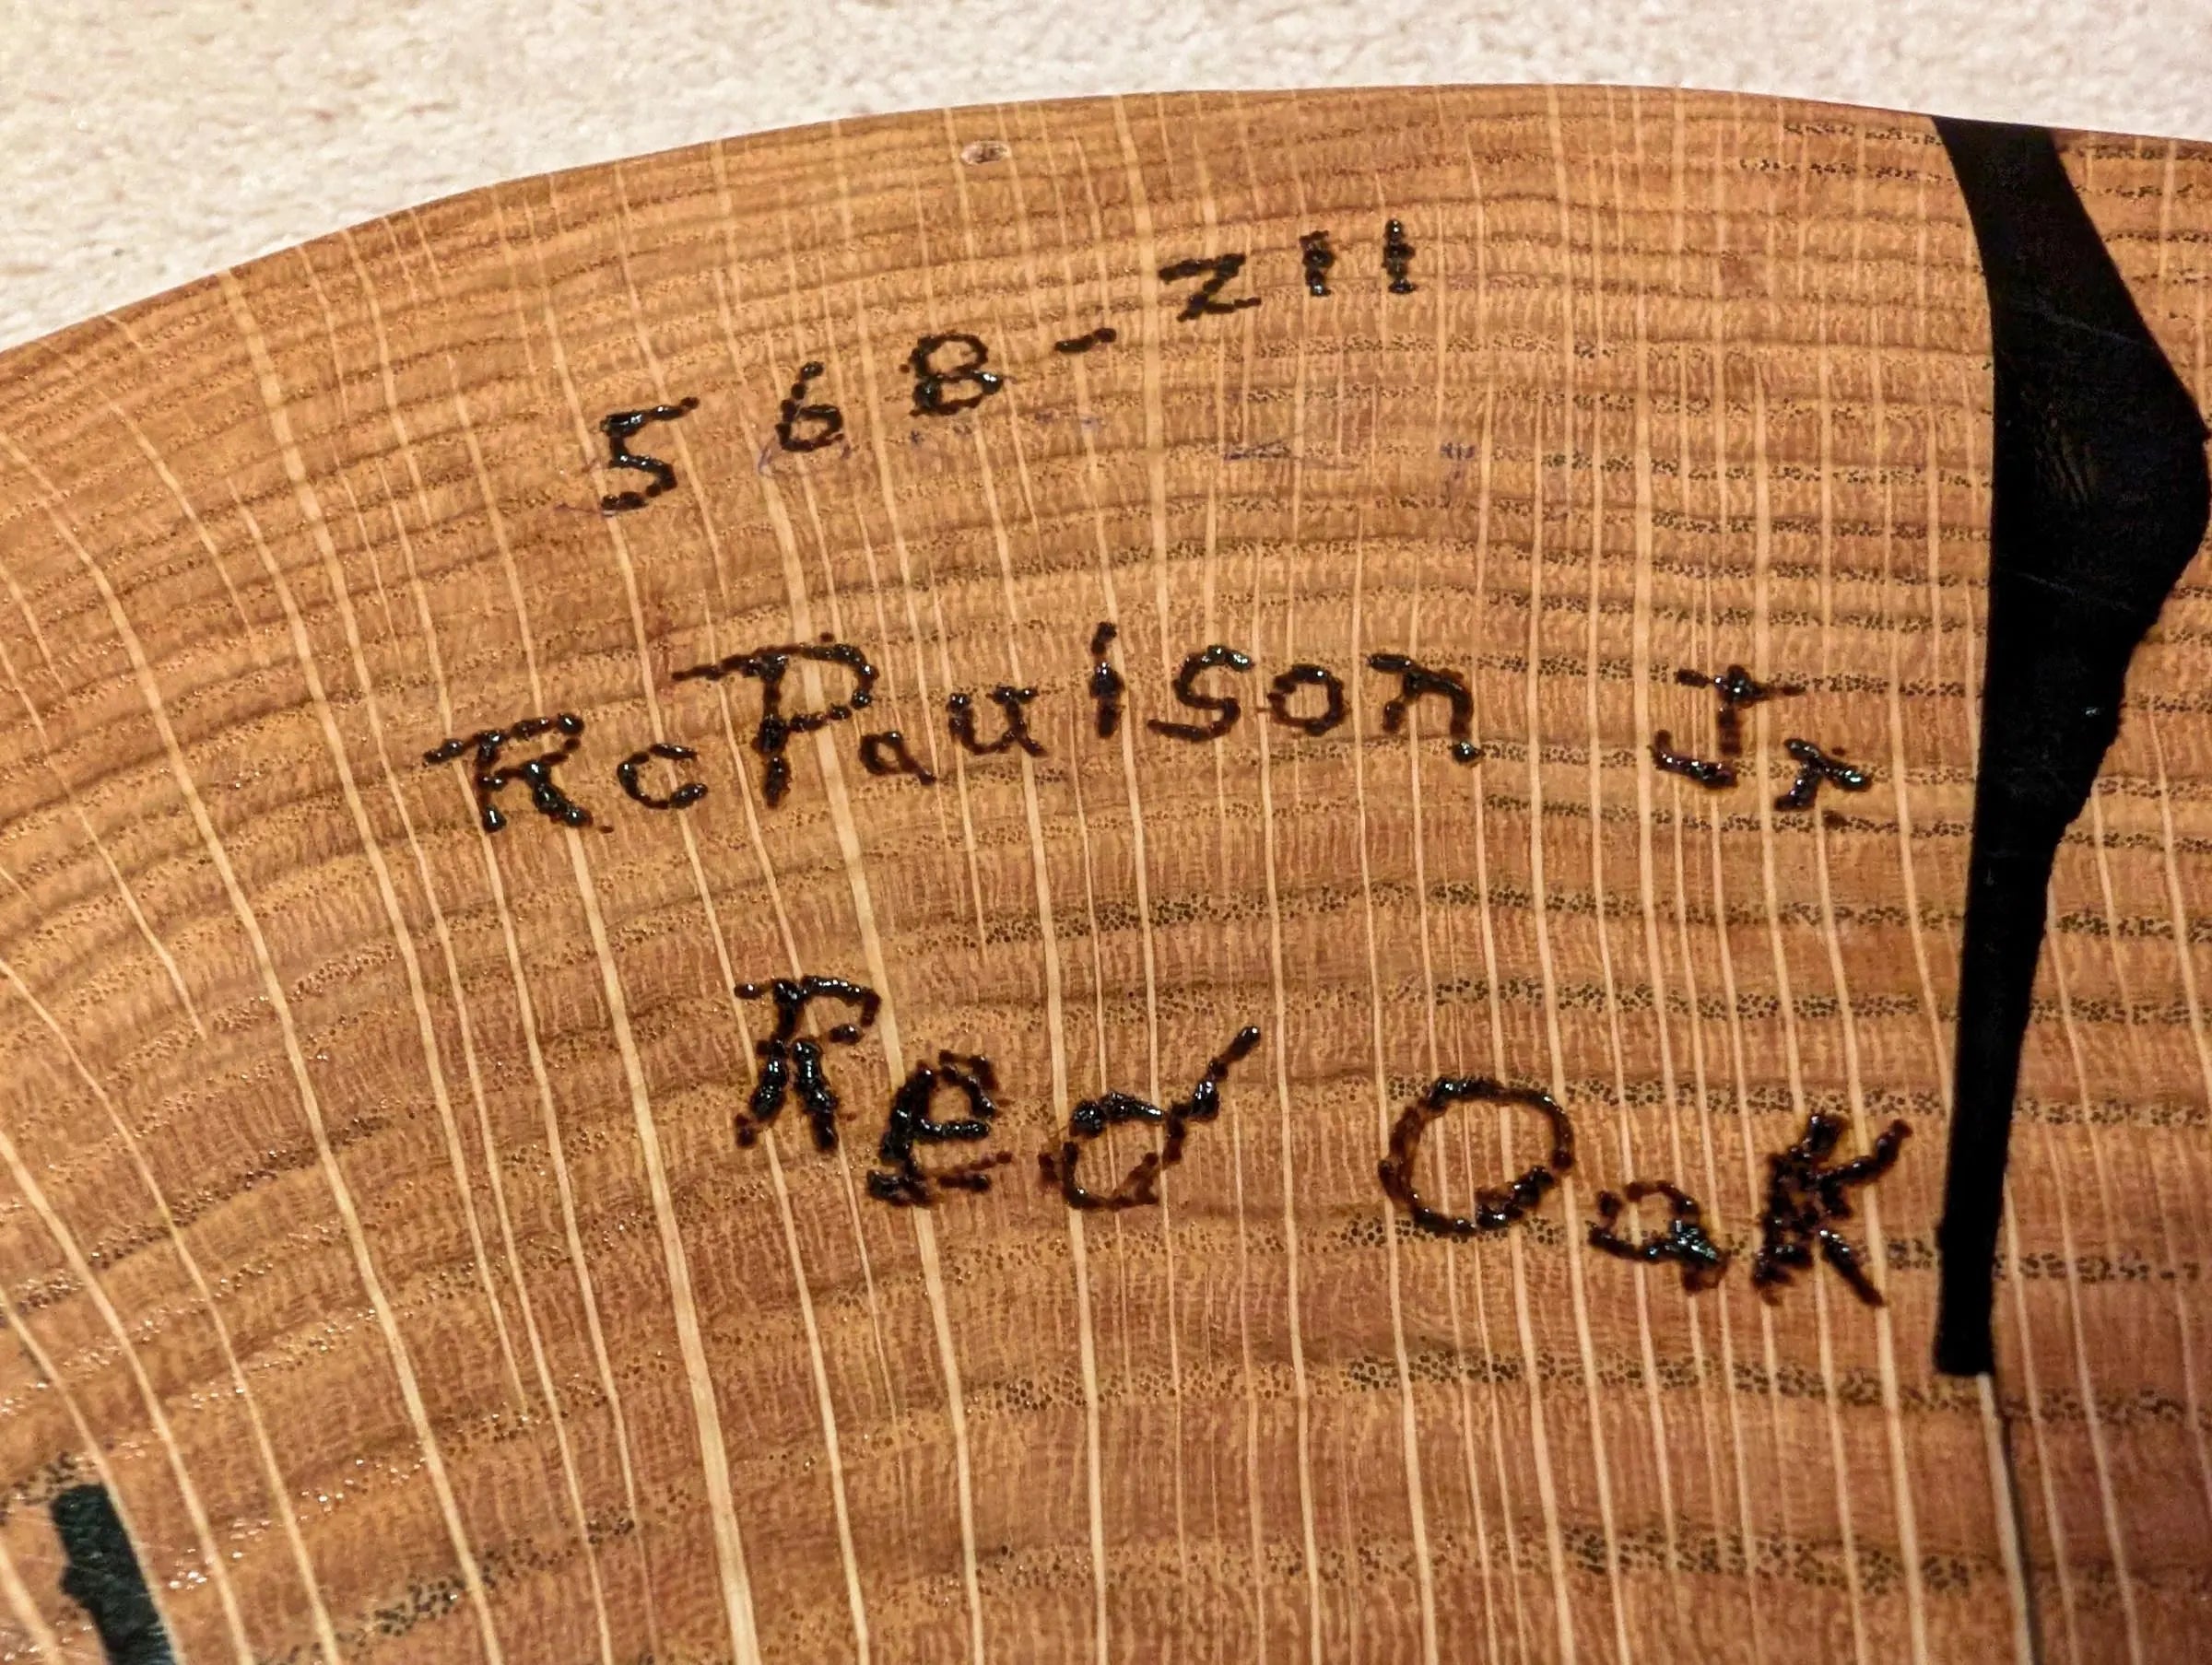 568-Z11
Rc Paulson Jr
Red Oak